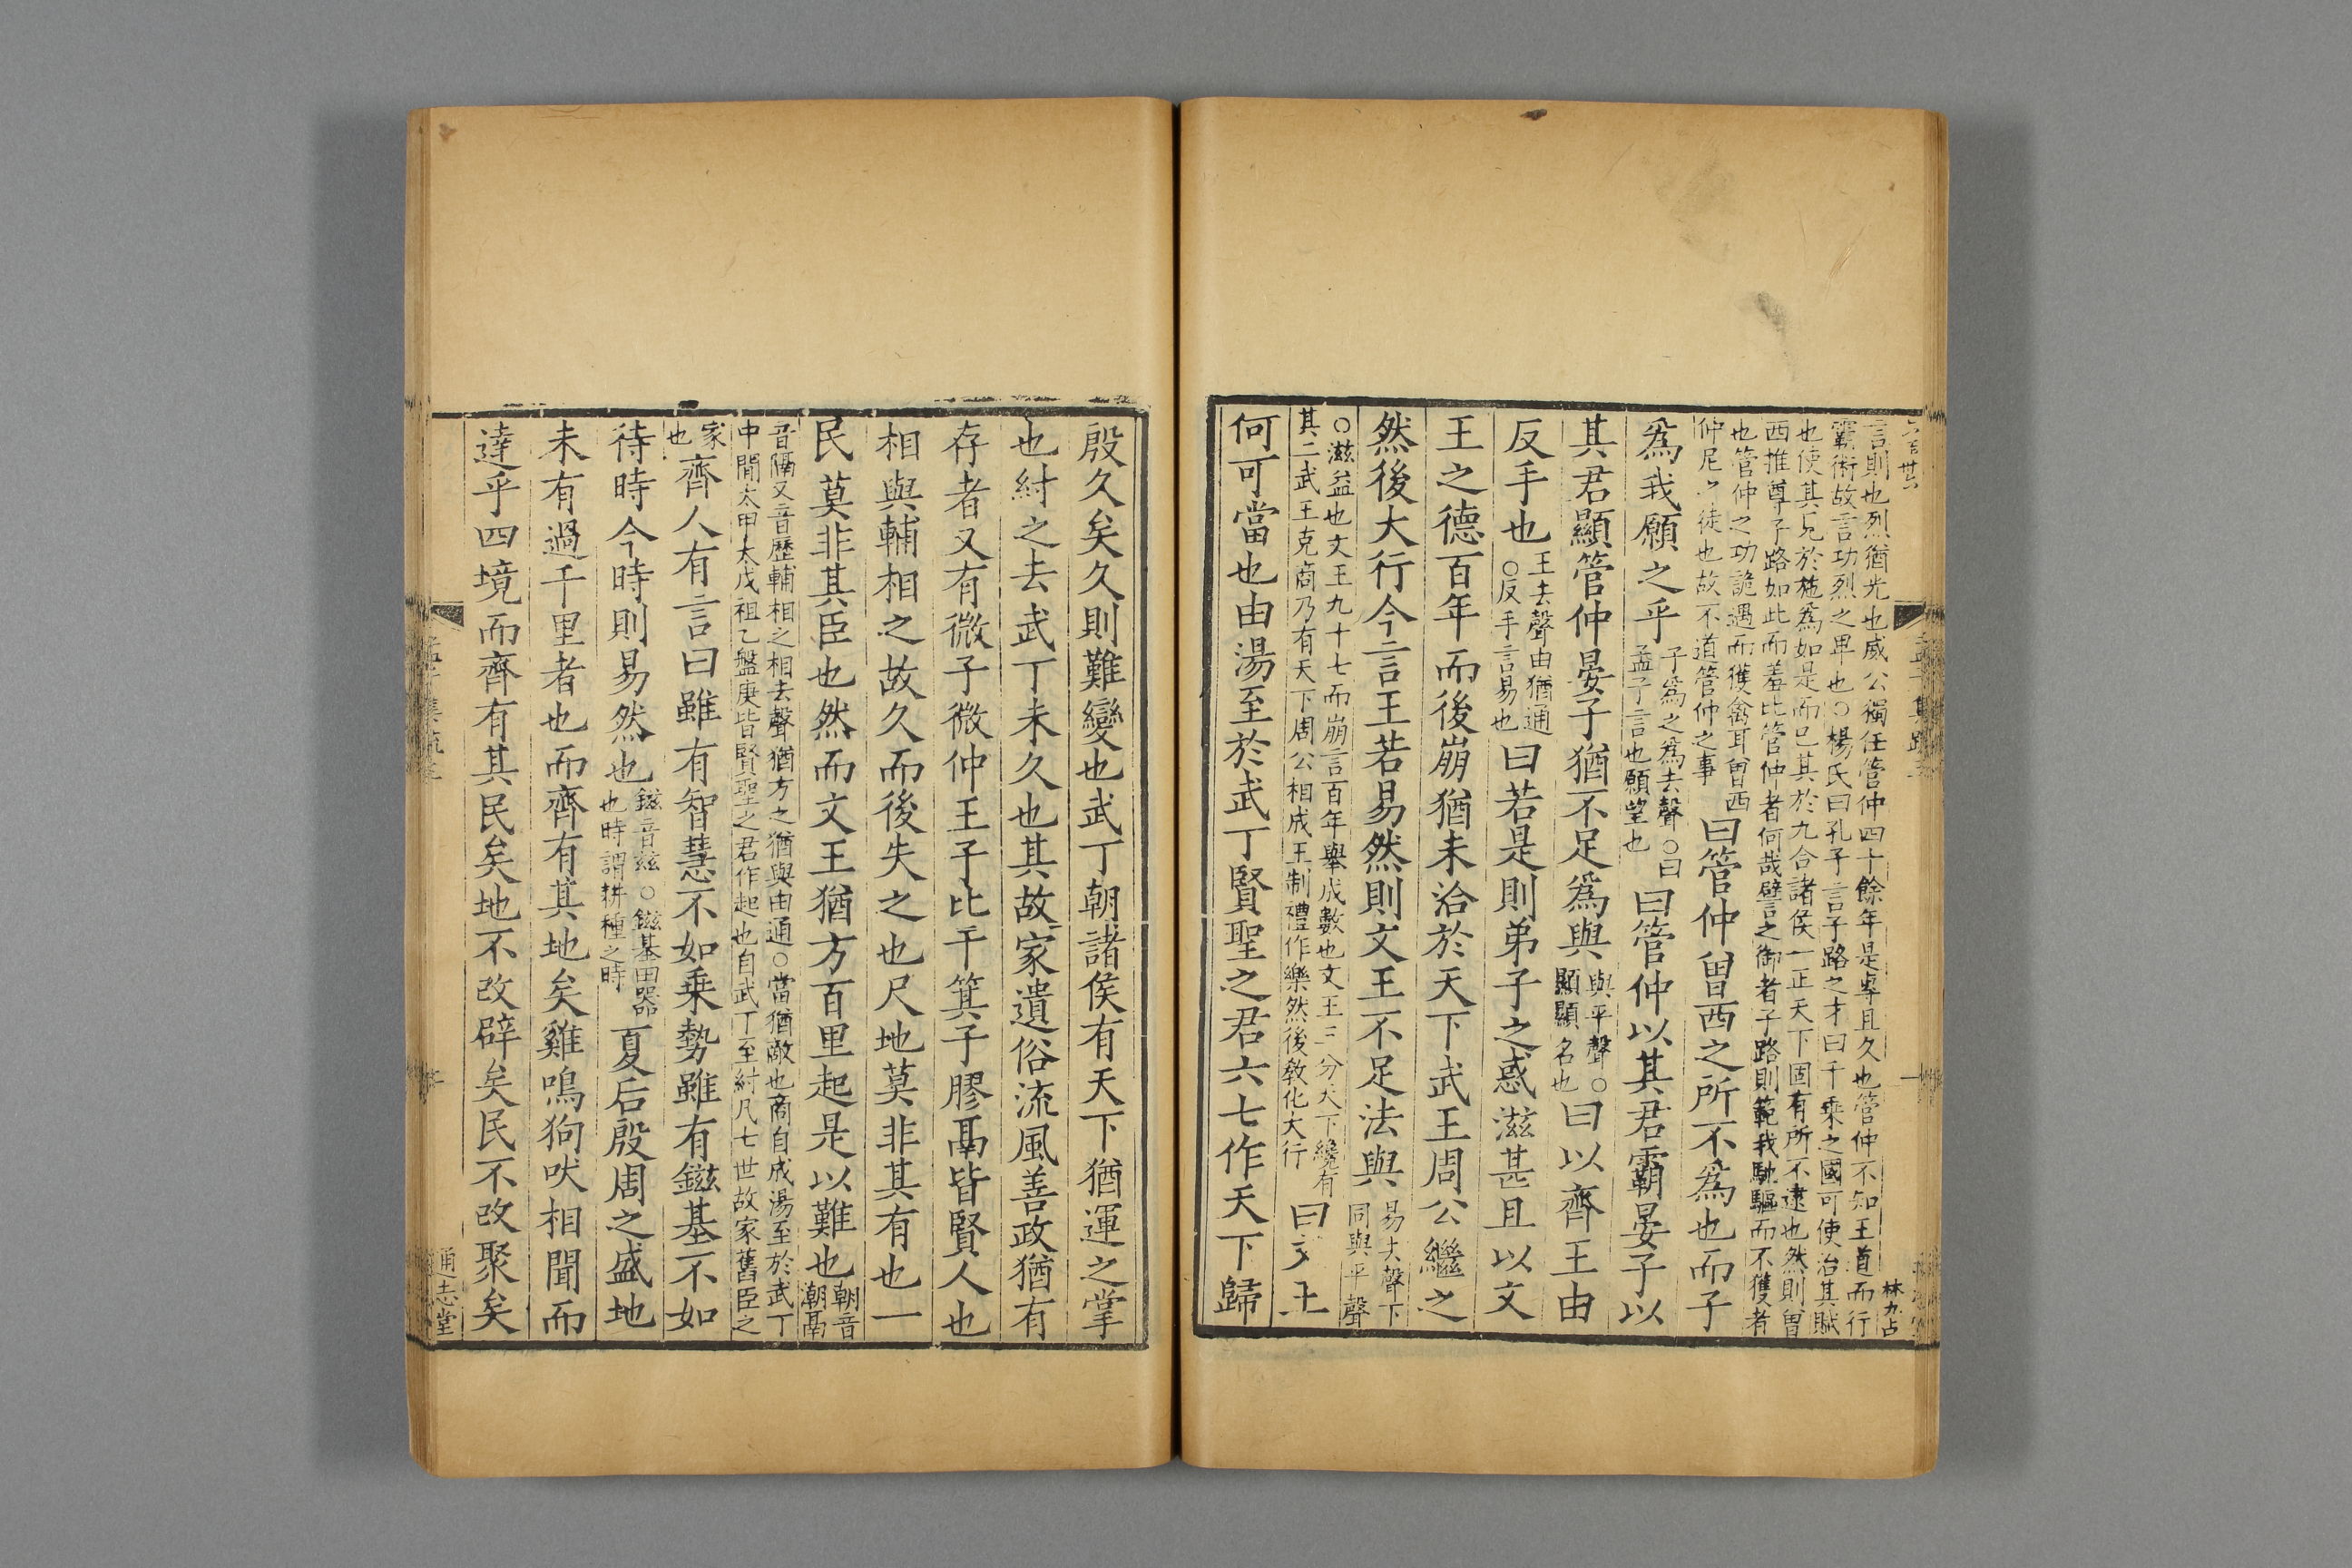 言則也烈猶光也威公獨任管仲四十餘年是專且久也管仲不知王道而行
霸術故言功烈之卑也○楊氏曰孔子言子路之才曰千乘之國可使治其賦
也使其見於施為如是而已其於九合諸侯一正天下固有所不逮也然則曾
西推尊子路如此而羞比管仲者何哉譬之御者子路則範我馳驅而不獲者
也管仲之功詭遇而獲禽耳曾西
仲尼之徒也故不道管仲之事
曰管仲曾西之所不爲也而子
爲我願之乎
子爲之爲去聲○曰
孟子言也願望也
曰管仲以其君霸晏子以
其君顯管仲晏子猶不足爲與
與平聲○
顯顯名也
曰以齊王由
反手也
王去聲由猶通
○反手言易也
曰若是則弟子之惑滋甚且以文
王之德百年而後崩猶未洽於天下武王周公繼之
然後大行今言王若易然則文王不足法與
易去聲下
同與平聲
○滋益也文王九十七而崩言百年舉成數也文王三分天下纔有
其二武王克商乃有天下周公相成王制禮作樂然後教化大行
曰文王
何可當也由湯至於武丁賢聖之君六七作天下歸
林九占
殷久矣久則難變也武丁朝諸侯有天下猶運之掌
也紂之去武丁未久也其故家遺俗流風善政猶有
存者又有微子微仲王子比干箕子膠鬲皆賢人也
相與輔相之故久而後失之也尺地莫非其有也一
民莫非其臣也然而文王猶方百里起是以難也
朝音
潮鬲
音隔又音歷輔相之相去聲猶方之猶與由通○當猶敵也商自成湯至於武丁
中間太甲太戊祖乙盤庚皆賢聖之君作起也自武丁至紂凡七世故家舊臣之
家
也
齊人有言曰雖有智慧不如乗勢雖有鎡基不如
待時今時則易然也
鎡音兹○鎡基田器
也時謂耕種之時
夏后殷周之盛地
未有過千里者也而齊有其地矣雞鳴狗吠相聞而
達乎四境而齊有其民矣地不改辟矣民不改聚矣
通志堂